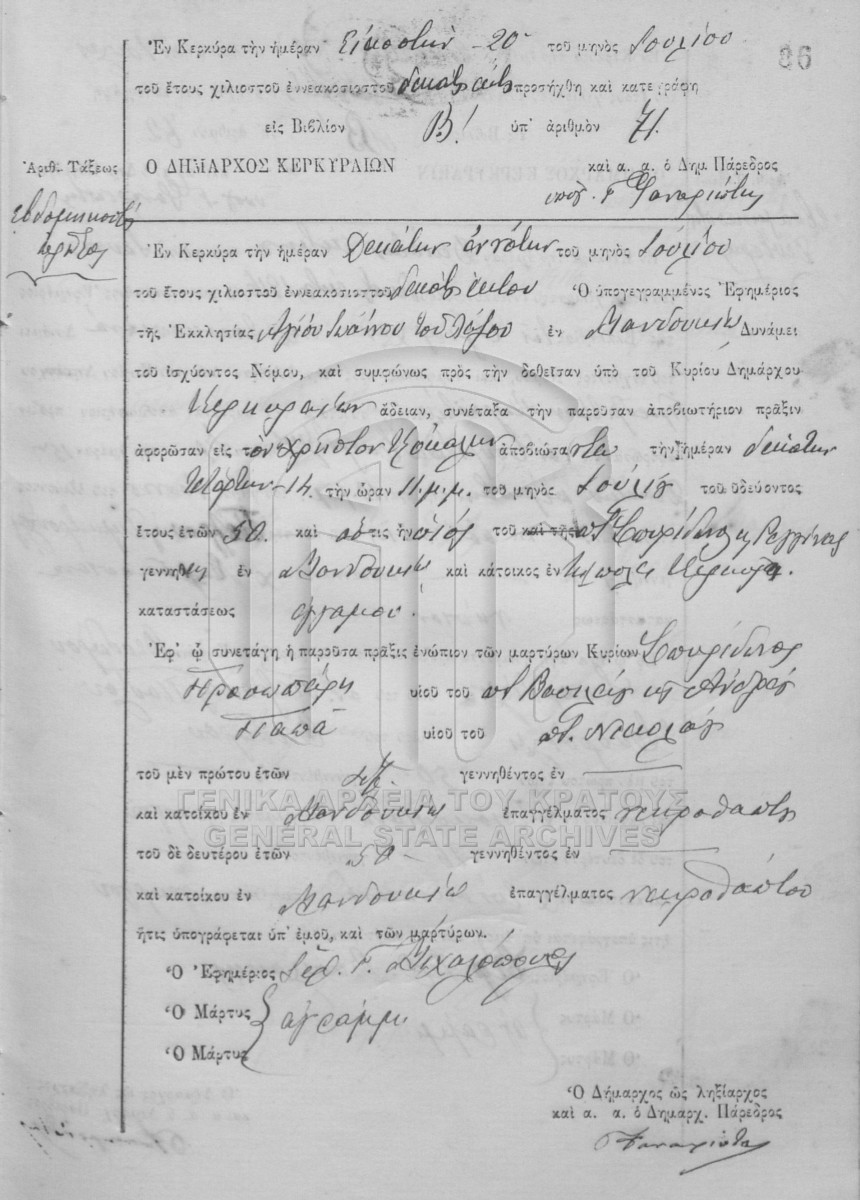 86
Ἐν Κερκύρᾳ τὴν ἡμέραν Εἰκοστὴν - 20 τοῦ μηνὸς Ἰουλίου
τοῦ ἔτους χιλιοστοῦ ἐννεακοσιοστοῦ δεκάτου ἕκτου προσήχθη καὶ κατεγράφη
εἰς Βιβλίον Β! ὑπ' ἀριθμὸν 71.
Ἀριθ. Τάξεως
Ο ΔΗΜΑΡΧΟΣ ΚΕΡΚΥΡΑΙΩΝ καὶ α. α. ὁ Δημ. Πάρεδρος
υπογ. Γ Φαναριώτης
Ἐν Κερκύρᾳ τὴν ἡμέραν Δεκάτην ἐννάτην τοῦ μηνὸς Ἰουλίου
τοῦ ἔτους χιλιοστοῦ ἐννεακοσιοστοῦ δεκάτου ἕκτου Ὁ ὑπογεγραμμένος Ἐφημέριος
τῆς Ἐκκλησίας Ἁγίου Ἰωάννου τοῦ Λόφου ἐν Μανδουκίῳ Δυνάμει
τοῦ ἰσχύοντος Νόμου, καὶ συμφώνως πρὸς τὴν δοθεῖσαν ὑπὸ τοῦ Κυρίου Δημάρχου
Κερκυραίων ἄδειαν, συνέταξα τὴν παροῦσαν ἀποβιωτήριον πρᾶξιν
ἀφορῶσαν εἰς τὸν Χρῆστον ἀποβιώσαντα τὴν ἡμέραν δεκάτην
τετάρτην - 14 τὴν ὥραν 11. μ. μ. τοῦ μηνὸς Ἰουλίου τοῦ ὁδεύοντος
ἔτους ἐτῶν 50. καὶ ὅστις ἦν υἱὸς τοῦ καὶ τῆς πτ Σπυρίδωνος κ Ρεγγίνας
γεννηθεὶς ἐν Μανδουκίῳ καὶ κάτοικος ἐν πόλει Κερκύρᾳ.
καταστάσεως ἔγγαμου.
Ἐφ' ᾧ συνετάγη ἡ παροῦσα πρᾶξις ἐνώπιον τῶν μαρτύρων Κυρίων Σπυρίδωνος
υἱοῦ τοῦ πτ Βασιλείου κ Ἀνδρέου
Παπᾶ υἱοῦ τοῦ πτ. Νικολάου
τοῦ μὲν πρώτου ἐτῶν γεννηθέντος ἐν
ΓΕΝΙΚΑ ΑΡΧΕΙΑ ΤΟΥ ΚΡΑΤΟΥΣ
καὶ κατοίκου ἐν Μανδουκίῳ ἐπαγγέλματος νεκροθάπτου
GENERAL STATE ARCHIVES
τοῦ δὲ δευτέρου ἐτῶν 50 - γεννηθέντος ἐν
καὶ κατοίκου ἐν Μανδουκίῳ ἐπαγγέλματος νεκροθάπτου
ἥτις ὑπογράφεται ὑπ' ἐμοῦ, καὶ τῶν μαρτύρων.
Ὁ Ἐφημέριος Γ. Μιχαλόπουλος
Ὁ Μάρτυς
ἀγράμμ.
Ὁ Μάρτυς
Ὁ Δήμαρχος ὡς ληξίαρχος
καὶ α. α. ὁ Δημαρχ. Πάρεδρος
Γ Φαναριώτης